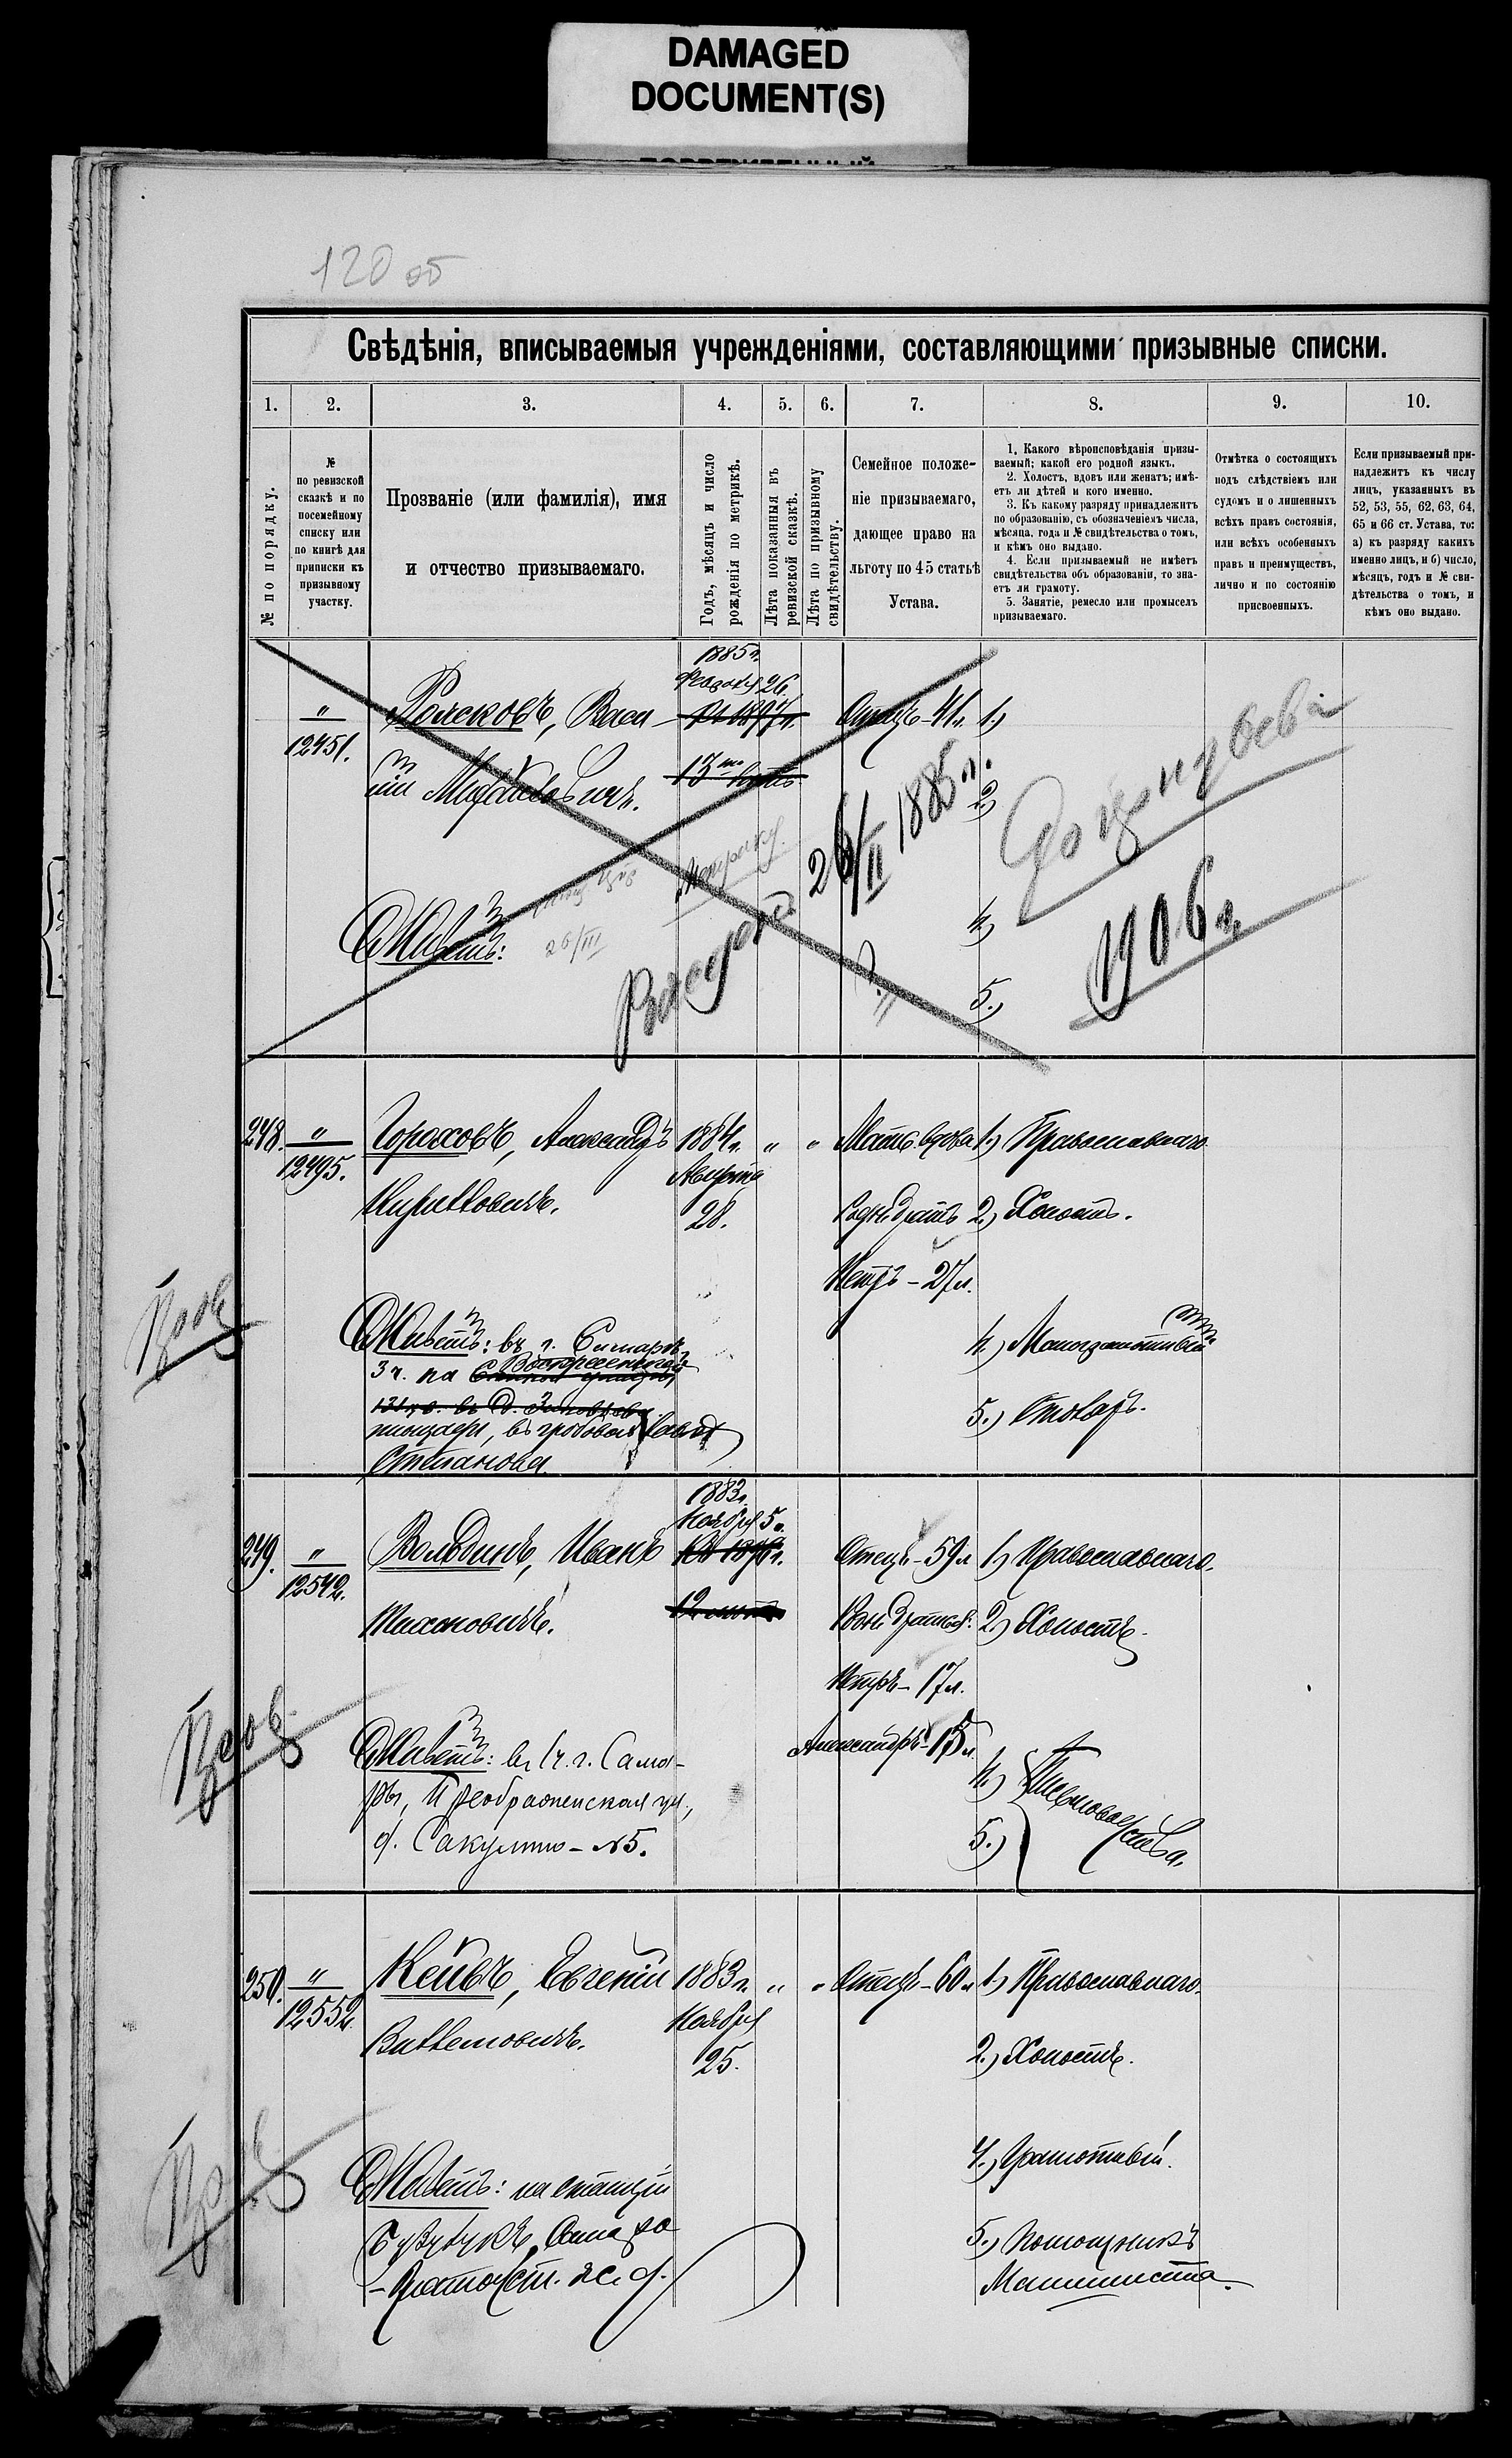 DAMAGED
DOCUMENT(S)
120 об
Свѣдѣнія, вписываемыя учрежденіями, составляющими призывные списки.
1.
2.
3.
4.
5.
6.
7.
8.
9.
10.
№ по порядку.
№
по ревизской
сказкѣ и по
посемейному
списку или
по книгѣ для
приписки къ
призывному
участку.
Прозваніе (или фамилія), имя
и отчество призываемаго.
Годъ, мѣсяцъ и число
рожденія по метрикѣ.
Лѣта показанныя въ
ревизской сказкѣ.
Лѣта по призывному
свидѣтельству.
Семейное положе-
ніе призываемаго,
дающее право на
льготу по 45 статьѣ
Устава.
1. Какого вѣроисповѣданія призы-
ваемый; какой его родной языкъ.
2. Холостъ, вдовъ или женатъ; имѣ-
етъ ли дѣтей и кого именно.
3. Къ какому разряду принадлежитъ
по образованію, съ обозначеніемъ числа,
мѣсяца, года и № свидѣтельства о томъ,
и кѣмъ оно выдано.
4. Если призываемый не имѣетъ
свидѣтельства объ образованіи, то зна-
етъ ли грамоту.
5. Занятіе, ремесло или промыселъ
призываемаго.
Отмѣтка о состоящихъ
подъ слѣдствіемъ или
судомъ и о лишенныхъ
всѣхъ правъ состоянія,
или всѣхъ особенныхъ
правъ и преимуществъ,
лично и по состоянію
присвоенныхъ.
Если призываемый при-
надлежитъ къ числу
лицъ, указанныхъ въ
52, 53, 55, 62, 63, 64,
65 и 66 ст. Устава, то:
а) къ разряду какихъ
именно лицъ, и б) число,
мѣсяцъ, годъ и № сви-
дѣтельства о томъ, и
кѣмъ оно выдано.
"
12451.
Васи-
лій
1885 г.
26.
Отецъ - 41 л.
1.)
2.)
4.)
5.)
Живетъ:
26/III
Метрику
26/II 1885 г.
До призыва
1906 г.
248.
"
12495.
Гороховъ, Александръ
1884 г.
Августа
28.
"
"
Мать вдова
Родн. братъ
Петръ - 27 л.
1.) Православнаго
2.) Холостъ.
4.) Малограмотный
5.) Столяръ.
Живетъ: въ г. Самарѣ,
3 ч. на Воскресенской
площади, въ гробовой
Степанова.
249.
"
12542.
Вольдинъ, Иванъ
Тихоновичъ.
1883 г.
Ноября 5 д.
Отецъ - 59 л.
Петръ - 17 л.
Александръ - 15 л.
1.) Православнаго.
2.) Холостъ.
4.)
5.)
Живетъ: въ 1 ч. г. Сама-
ры, Преображенская ул.,
д. Сакулина - №5.
250.
"
12552.
Кейвъ, Евгеній
1883 г.
Ноября
25.
"
"
Отецъ - 60 л.
1.) Православнаго.
2.) Холостъ.
4.) Грамотный.
5.) Помощникъ
Машиниста.
Живетъ: на станціи
Бузулукъ, Самаро
- Златоуст. ж. д.